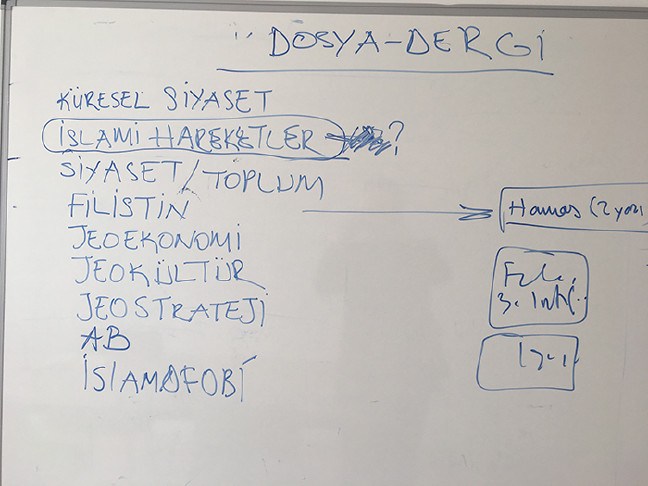 DOSYA-DERGİ
KÜRESEL SİYASET
İSLAMİ HAREKETLER ?
SİYASET/TOPLUM
FİLİSTİN
Hamas (2 yazı
JEOEKONOMİ
JEOKÜLTÜR
3. İnti.
JEOSTRATEJİ
AB
İSLAMOFOBİ